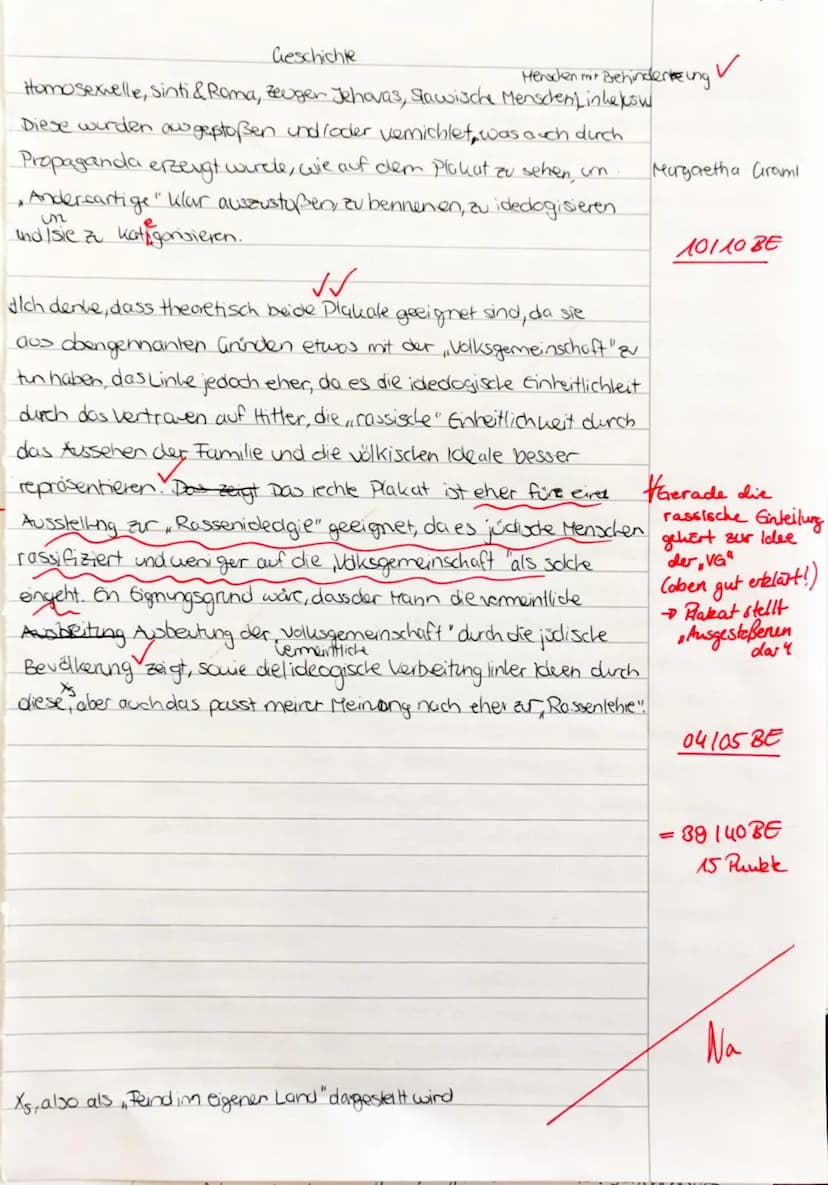 Geschichte
Menschen mit Behinderung ✓
Homosexuelle, Sinti & Roma, Zeugen Jehovas, Slawische Menschen, Linke usw
Diese wurden ausgestoßen und/oder vernichtet, was auch durch
Propaganda erzeugt wurde, wie auf dem Plakat zu sehen, um
Margaretha Graml
„Andersartige" klar auszustoßen, zu bennenen, zu ideologisieren
und um sie zu kategorisieren.
10/10 BE
✓✓
d)Ich denke, dass theoretisch beide Plakate geeignet sind, da sie
aus obengennanten Gründen etwas mit der „Volksgemeinschaft" zu
tun haben, das Linke jedoch eher, da es die ideologische Einheitlichkeit
durch das Vertrauen auf Hitler, die „rassische" Einheitlichkeit durch
das Aussehen der Familie und die völkischen Ideale besser
repräsentieren. ✓ Das zeigt Das rechte Plakat ist eher für eine
Ausstellung zur „Rassenideologie" geeignet, da es jüdische Menschen
rassifiziert und weniger auf die „Volksgemeinschaft" als solche
eingeht. Ein Eignungsgrund wäre, dass der Mann die vermeintliche
Ausbeitung Ausbeutung der „Volksgemeinschaft" durch die jüdische
Bevölkerung ✓ zeigt, sowie die vermeintliche ideogische Verbeitung linker Ideen durch
diese x5, aber auch das passt meiner Meinung nach eher zur „Rassenlehre".
Gerade die
rassische Einteilung
gehört zur Idee
der „VG"
(oben gut erklärt!)
→ Plakat stellt
„Ausgestoßenen
dar"
04/05 BE
= 39/40 BE
15 Punkte
Na
x5, also als „Feind im eigenen Land" dargestellt wird